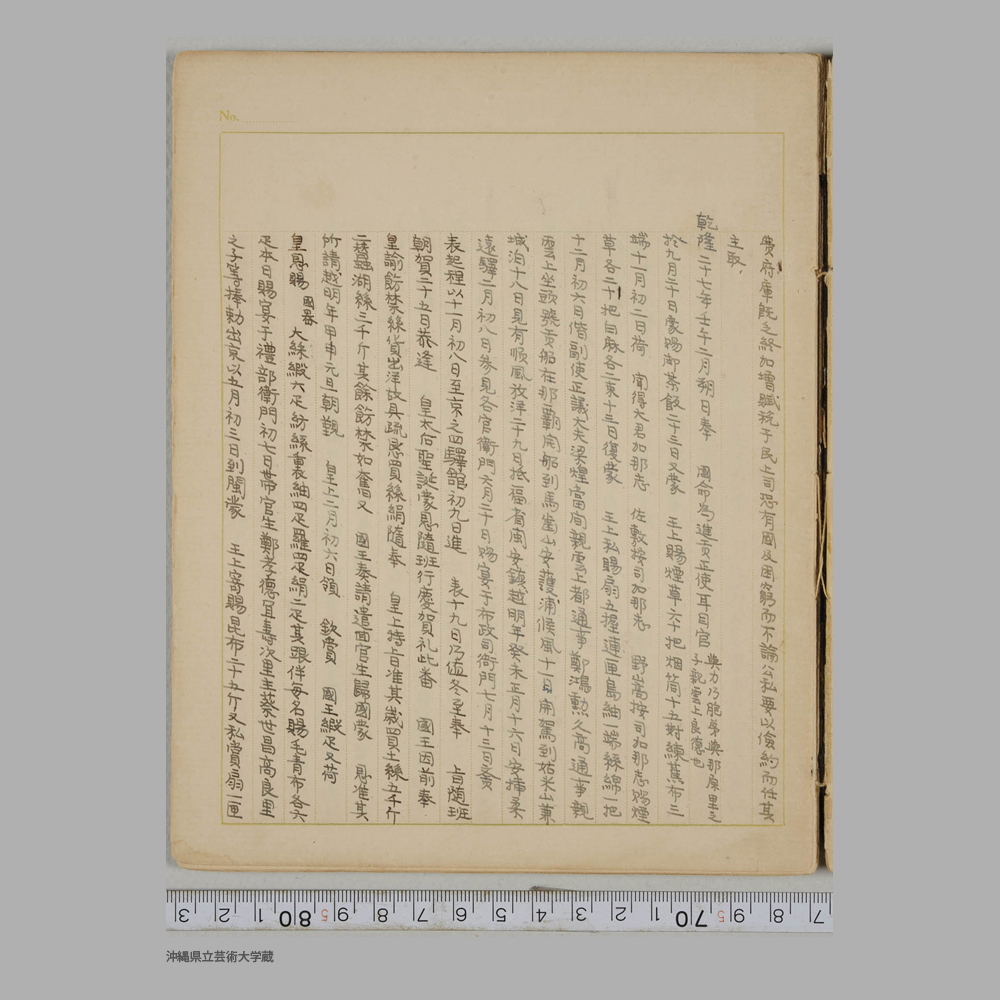 費府庫既乏終加増賦税于民上司恐有國及困窮而不論公私要以倹約而任其
主取、
乾隆二十七年壬午二月朔日奉　國命為進貢正使耳目官
與力乃胞弟與那原里之
子親雲上良應也
於九月二十日蒙賜御茶飯二十三日又蒙　王上賜煙草六十把烟筒十五對練蕉布三
端十一月初二日荷　聞得大君加那志　佐敷按司加那志　野嵩按司加那志賜煙
草各二十把白麻各二束十三日復蒙　王上私賜扇五握連一匣島紬一端絲綿一把
十二月初六日偕副使正議大夫梁煌當間親雲上都通事鄭鴻勲久高通事親
雲上坐頭號貢船在那覇開船到馬歯山安護浦候風十一日開駕到姑米山兼
城泊十八日見有順風放洋二十九日抵福省閩安鎮越明年癸未正月十六日安挿柔
遠驛二月初八日参見各官衛門六月二十日賜宴于布政司衛門七月十三日齎
表起程以十一月初八日至京之四驛舘初九日進　表十九日乃値冬至奉　旨随班
朝賀二十五日恭逢　皇太后聖誕蒙恩隨班行慶賀礼此番　國王因前奉
皇諭飭禁絲貨出洋故具疏懇買絲絹隨奉　皇上特旨准其歳買土絲五千斤
二蠶湖絲三千斤其餘飭禁如奮又　國王奏請遣回官生歸國蒙　恩准其
所請越明年甲申元旦朝覲　皇上二月初六日領　欽賞　國王緞疋又荷
皇恩賜 國器 大綵緞六疋紡絲裏紬四疋羅四疋絹二疋其跟伴毎名賜毛青布各六
疋本日賜宴于禮部衛門初七日帯官生鄭孝德宜壽次里主蔡世昌高良里
之子等捧勅出京以五月初三日到閩蒙　王上寄賜昆布二十五斤又私賞扇一匣
No.
3 2 1 80 9 8 7 6 5 4 3 2 1 70 9 8 7
沖縄県立芸術大学蔵